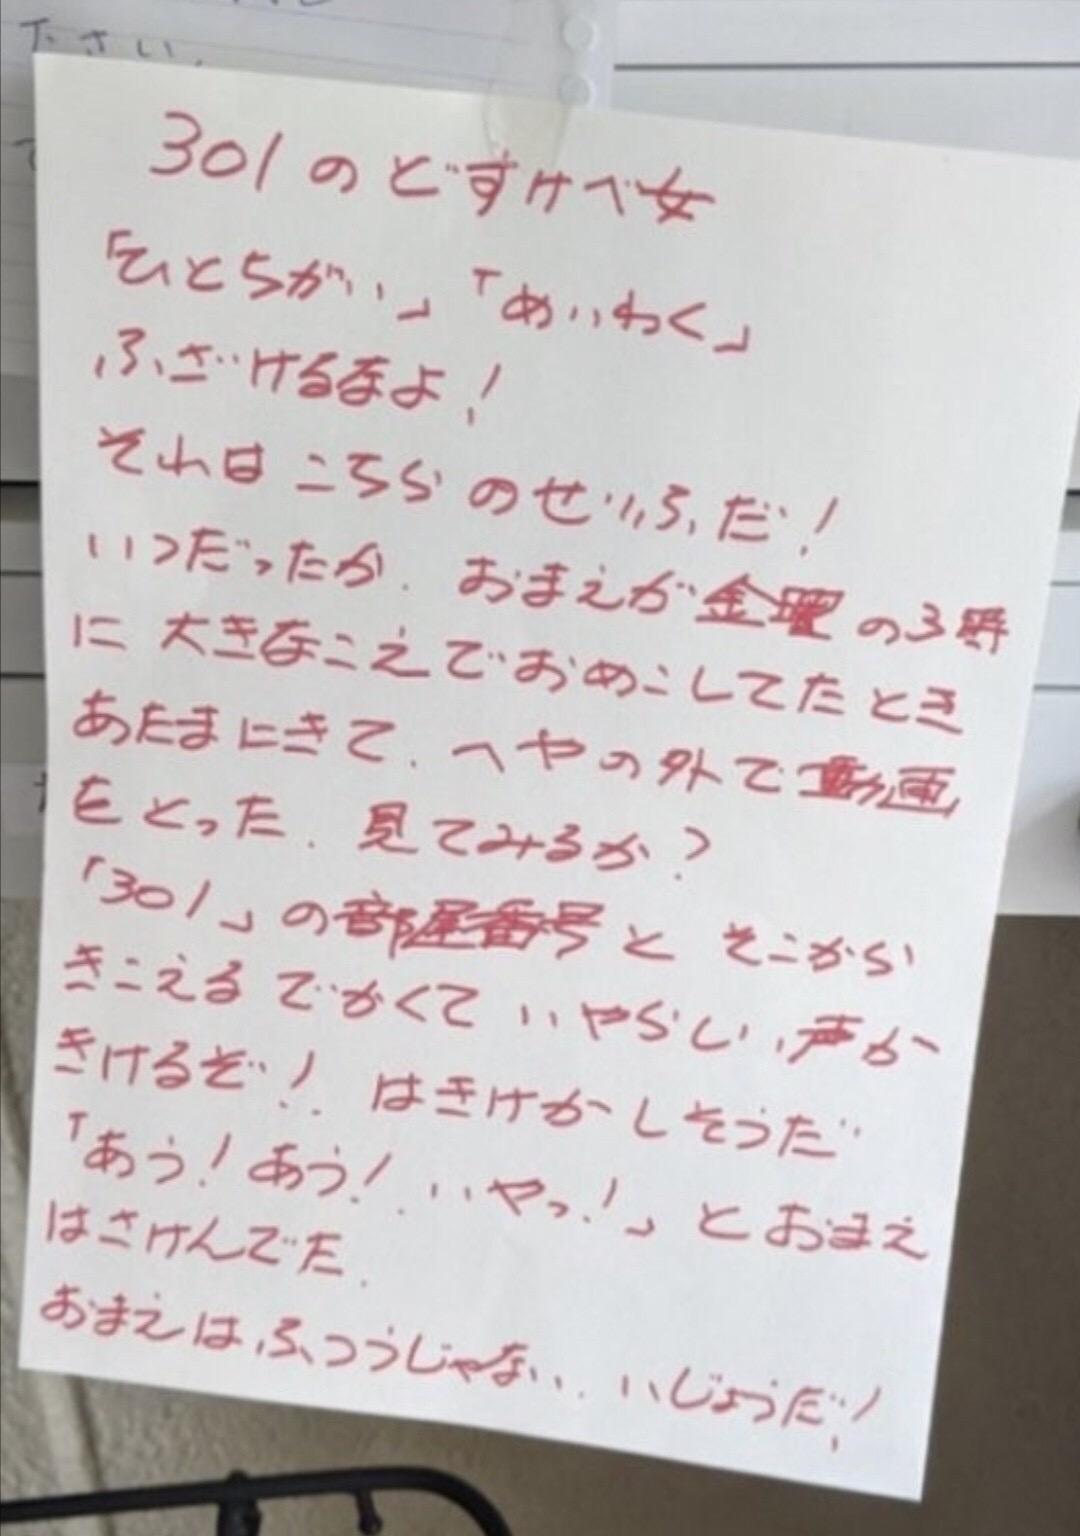 ださい.
301のどすけべ女
「ひとちがい」「めいわく」
ふざけるなよ!
それは こちらのせりふだ!
いつだったか. おまえが金曜の3時
に 大きなこえでおめこしてたとき
あたまにきて. へやの外で動画
をとった. 見てみるか?
「301」の部屋番号と そこから
きこえる でかくて いやらしい声が
きけるぞ! はきけがしそうだ
「あう! あう! いやっ!」とおまえ
はさけんでた.
おまえはふつうじゃない. いじょうだ!